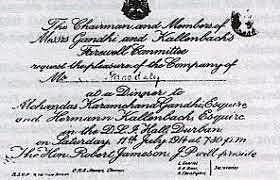 The Chairman and Members of
Messrs Gandhi and Kallenbach's
Farewell Committee
request the pleasure of the Company of
Mr
at a Dinner to
Mohandas Karamchand Gandhi, Esquire
and Hermann Kallenbach Esquire
in the D.L.I. Hall, Durban
on Saturday, 11th July 1914 at 7.30 p.m.
The Hon. Robert Jameson, J.P. will preside
R.S.V.P.
Secretaries